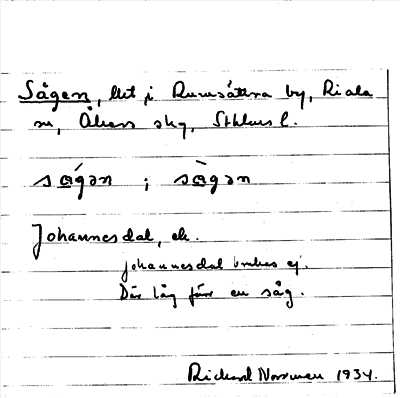 Sågen, lht i Rumsättra by, Riala
sn, Åkers skg, Sthlms l.
sågən ; sågən
Johannesdal, ek.
Johannesdal brukas ej.
Där låg förr en såg.
Rickard Norrman 1934.